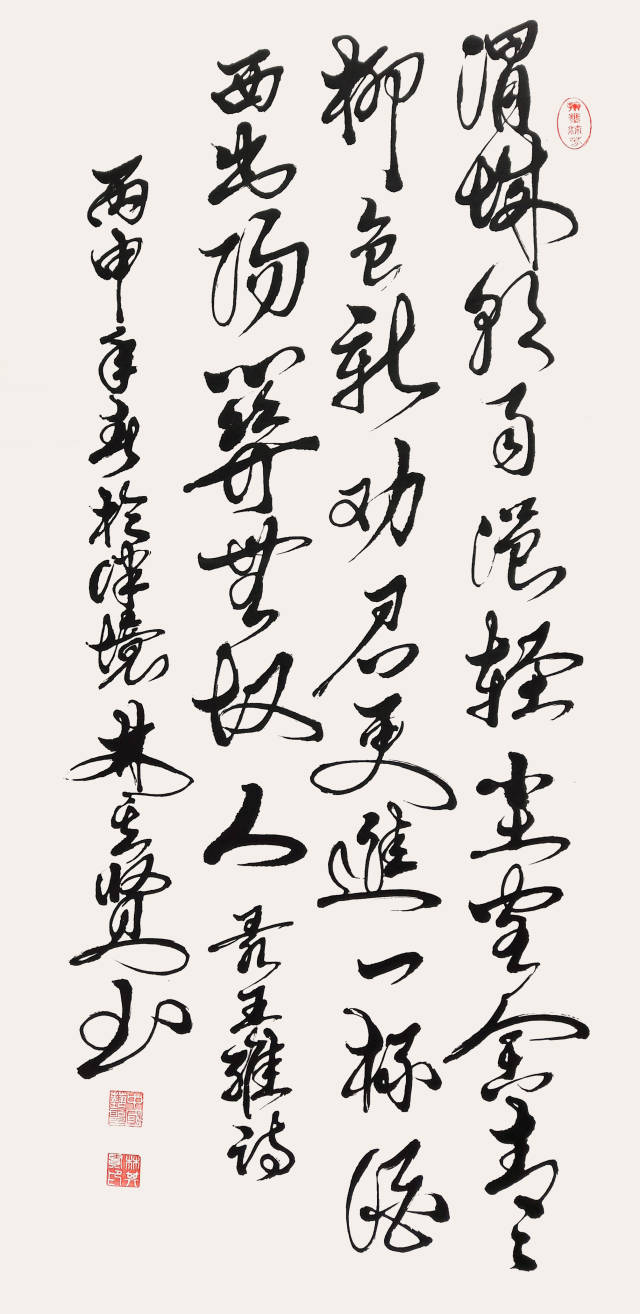 渭城朝雨浥輕尘客舍青々
柳色新劝君更進一杯酒
西出陽關無故人 录王維詩
丙申年春於津境 林其賢书